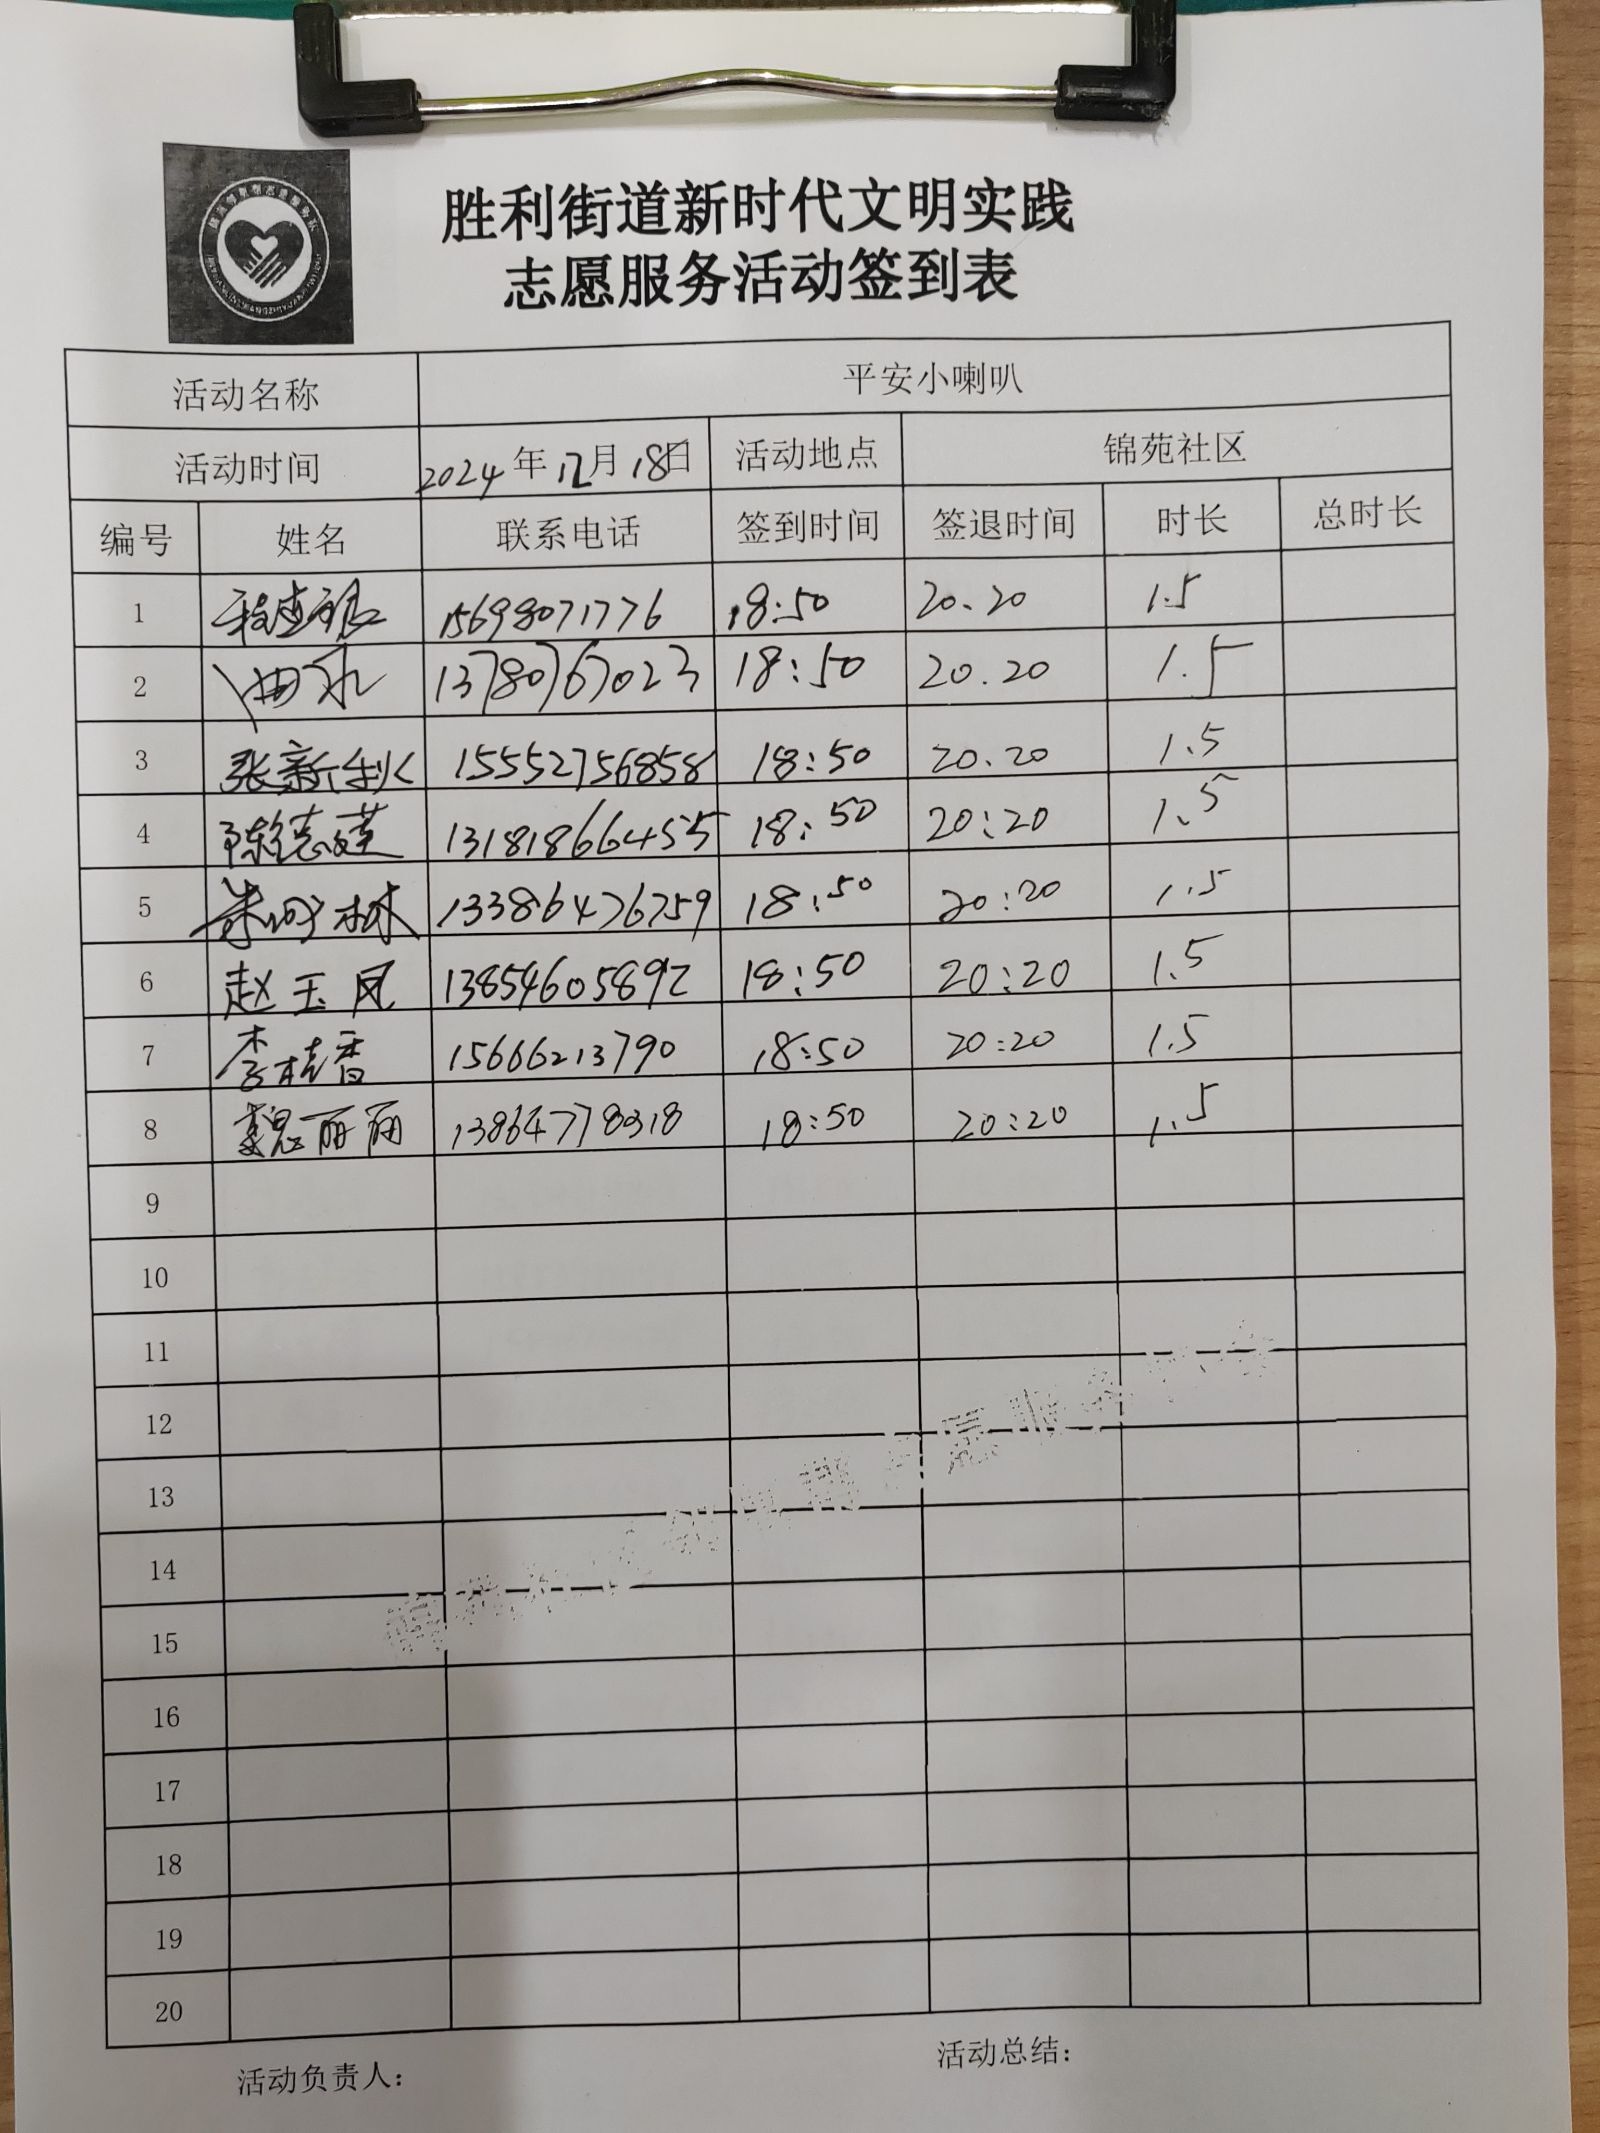 胜利街道新时代文明实践
志愿服务活动签到表
活动名称 平安小喇叭
活动时间 2024年12月18日 活动地点 锦苑社区
编号 姓名 联系电话 签到时间 签退时间 时长 总时长
1 15698071776 18:50 20.20 1.5
2 曲永 13780767023 18:50 20.20 1.5
3 张新利 15552756858 18:50 20.20 1.5
4 陈德莲 13181866455 18:50 20:20 1.5
5 13386476759 18:50 20:20 1.5
6 赵玉凤 13854605892 18:50 20:20 1.5
7 李桂香 15666213790 18:50 20:20 1.5
8 魏丽丽 13864778318 18:50 20:20 1.5
9
10
11
12
13
14
15
16
17
18
19
20
活动负责人: 活动总结: